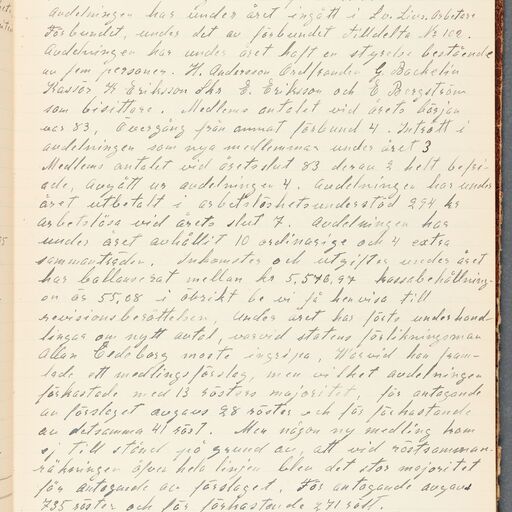 avdelningen har under året ingått i Sv. Livs. Arbetare
Förbundet, under det av förbundet tilldelta Nr 102.
Avdelningen har under året haft en styrelse bestående
av fem personer. H. Andersson Ordfrande G Bachelin
Kassör K Eriksson Skr E. Eriksson och E Bergström
som bisittare. Medlems antalet vid årets början
var 83, Övergång från annat förbund 4. Inträtt i
avdelningen som nya medlemmar under året 3
Medlems antalet vid årets slut 83 derav 2 helt befri-
ade, avgått ur avdelningen 4. Avdelningen har under
året utbetalt i arbetslöshetsunderstöd 294 kr
arbetslösa vid årets slut 7. Avdelningen har
under året avhållit 10 ordinarige och 4 extra
sammanträden. Inkomster och utgifter under året
har ballanserat mellan kr 5,546,97 kassabehållning-
en är 55,08 i öbrikt be vi få henvisa till
revisionsberättelsen, Under året har förts underhand-
lingar om nytt avtal, varvid statens förlikningsman
Allan Cederborg moste ingripa, Varvid han fram-
lade ett medlingsförslag, men vilket avdelningen
förkastade med 13 rösters majoritet, för antagande
av förslaget avgavs 28 röster och för förkastande
av detsamma 41 röst. Men någon ny medling kom
ej till stånd på grund av, att vid röstsamman-
räkningen över hela linjen blev det stor majoritet
för antagande av förslaget. För antagande avgavs
735 röster och för förkastande 271 röst.